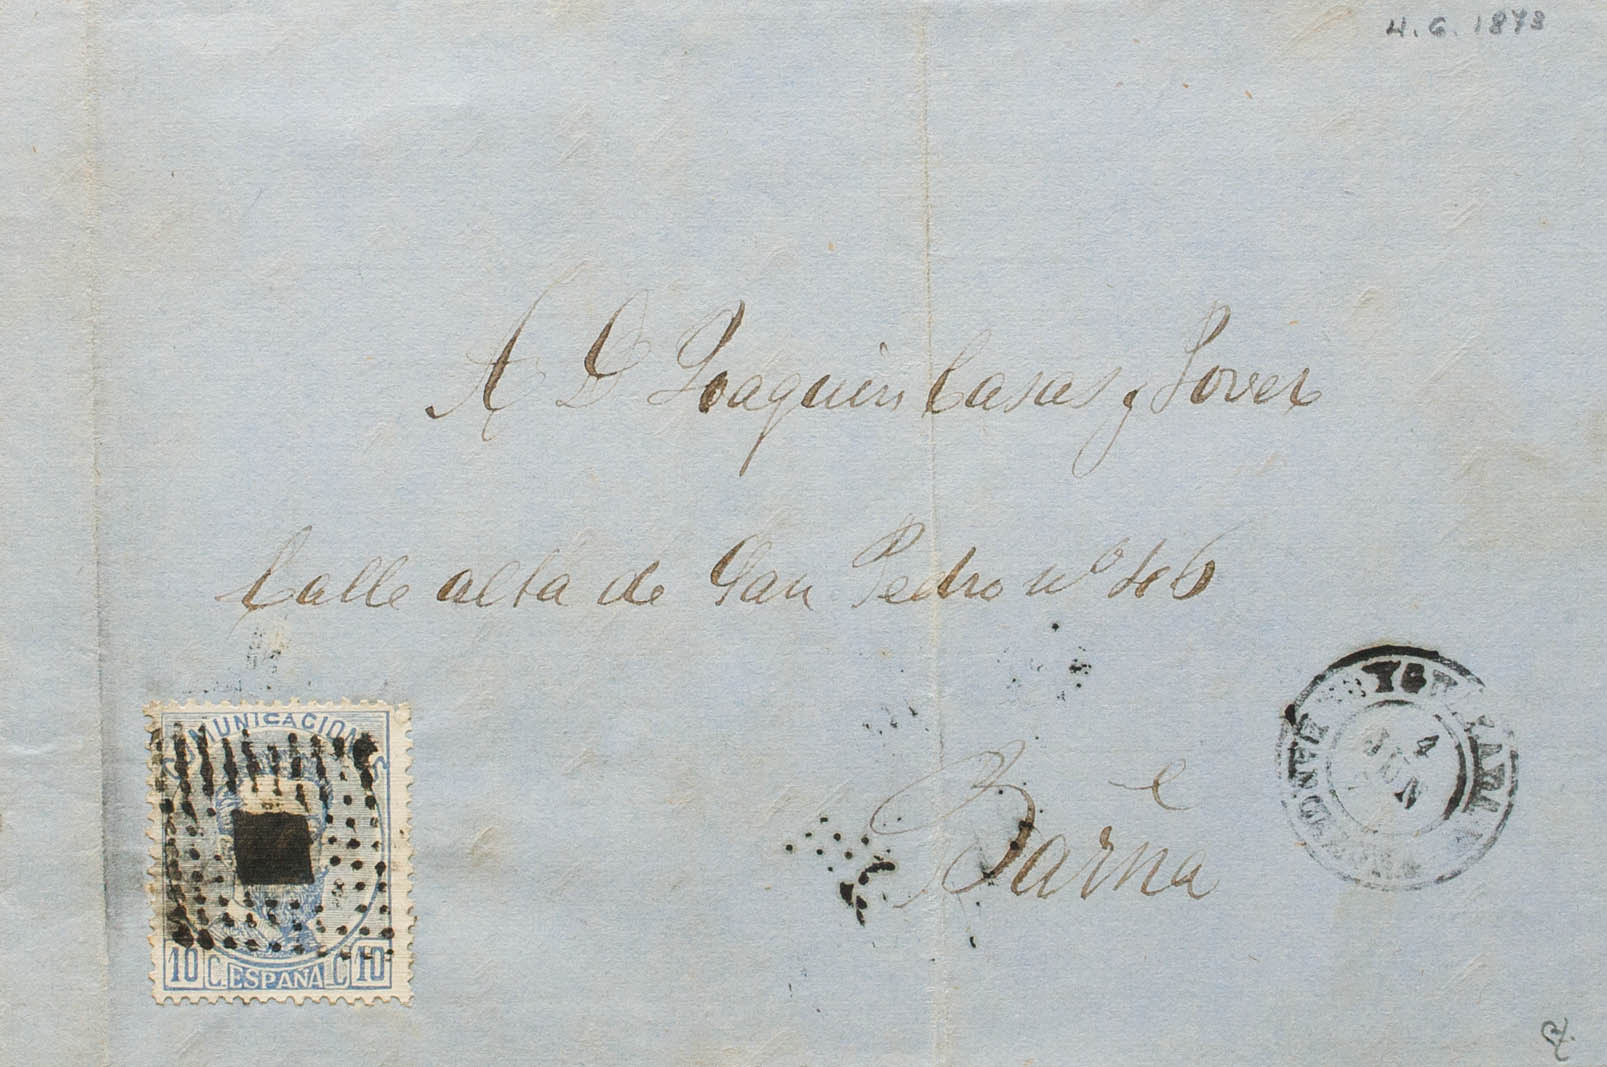 4. 6. 1873
A D Joaquin Casas y Jover
Calle alta de San Pedro nº 46
Barna
COMUNICACIONES
10 C. ESPAÑA C 10
4
JUN